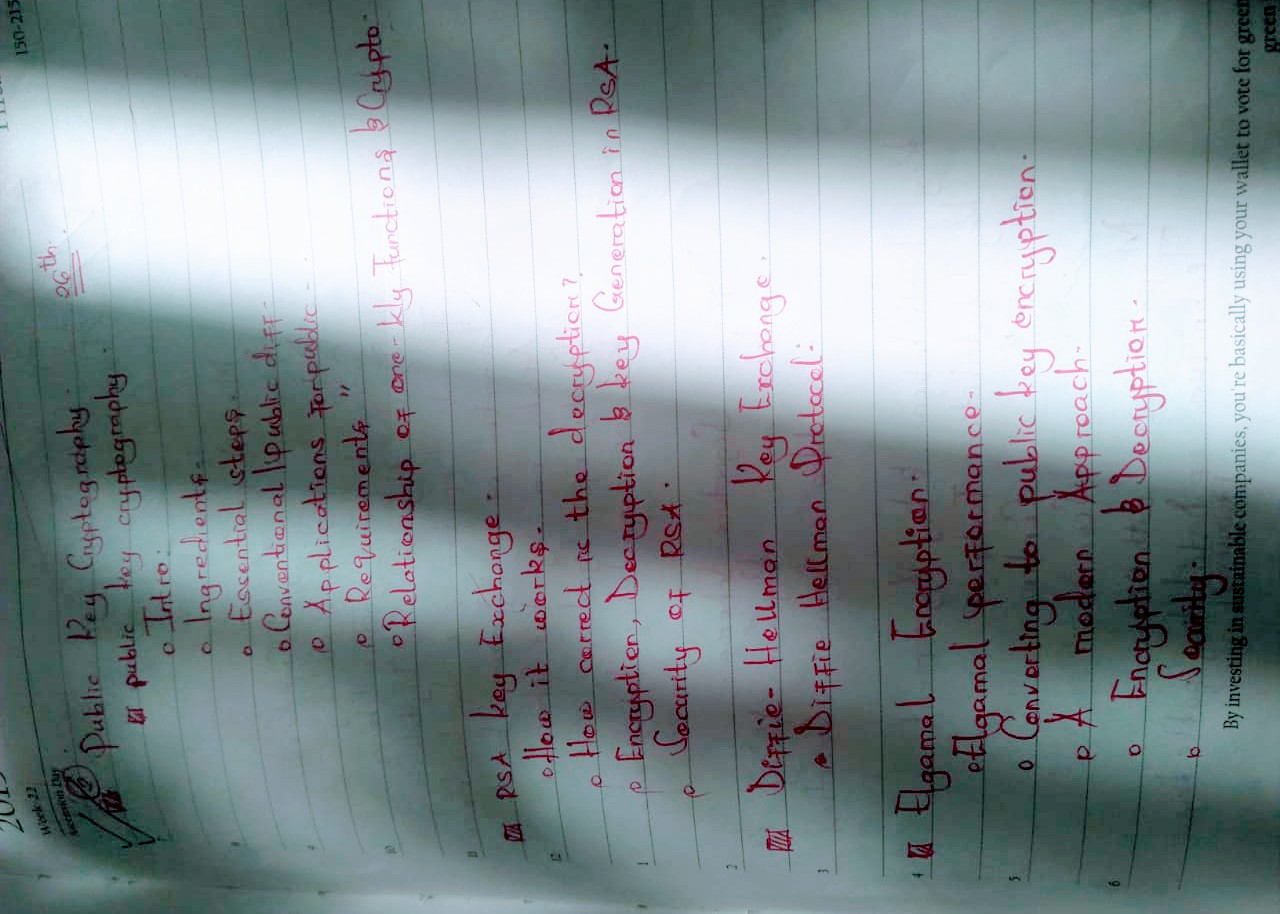 150-215
Week 22
Ascension Day
26th.
Public Key Cryptography.
public key cryptography.
o Intro:
o Ingredients.
o Essential steps.
o Conventional / public diff.
o Applications for public.
o Requirements "
o Relationship of one-kly Functions & Crypto.
RSA key Exchange.
o How it works.
o How correct is the decryption?
o Encryption, Decryption & key Generation in RSA.
o Security of RSA.
Diffie-Hellman Key Exchange.
o Diffie Hellman Protocol.
Elgamal Encryption.
o Elgamal performance.
o Converting to public key encryption.
o A modern Approach.
o Encryption & Decryption.
o Security.
8
9
10
11
12
1
2
3
4
5
6
By investing in sustainable companies, you're basically using your wallet to vote for green
green